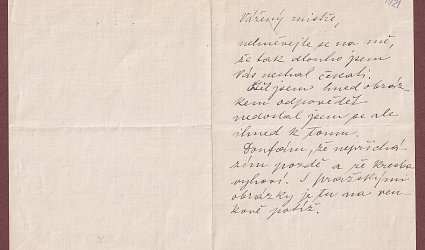 1921
Vážený mistře,
nehněvejte se na mě,
že tak dlouho jsem
Vás nechal čekati.
Chtěl jsem hned obráz-
kem odpovědět
nedostal jsem se ale
ihned k tomu.
Doufám, že nepřichá-
zím pozdě a že kresba
vyhoví. S pražskými
obrázky je tu na ven-
kově potíž.